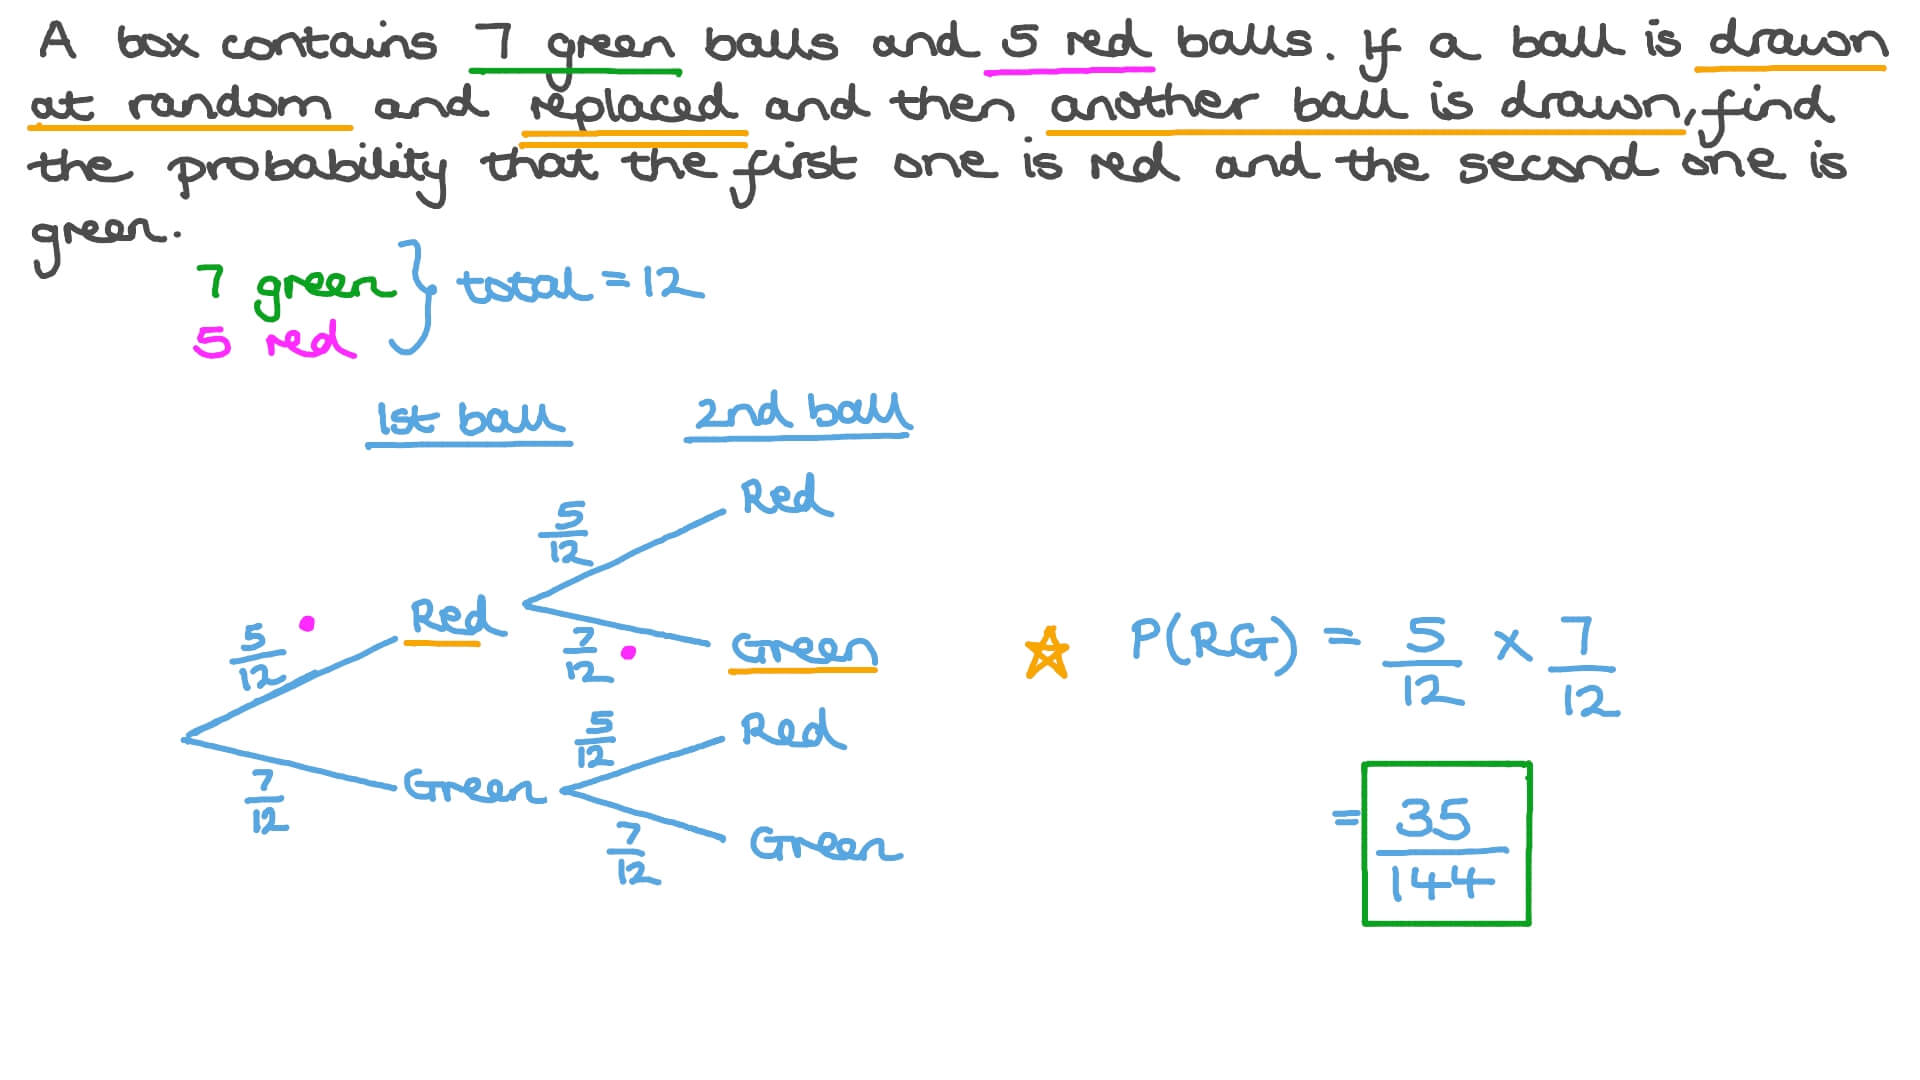 A box contains 7 green balls and 5 red balls. If a ball is drawn
at random and replaced and then another ball is drawn, find
the probability that the first one is red and the second one is
green.
7 green } total = 12
5 red
1st ball 2nd ball
Red
5/12
Red
5/12
7/12
Green
☆ P(RG) = 5/12 × 7/12
5/12
Red
7/12
Green
= 35/144
7/12
Green